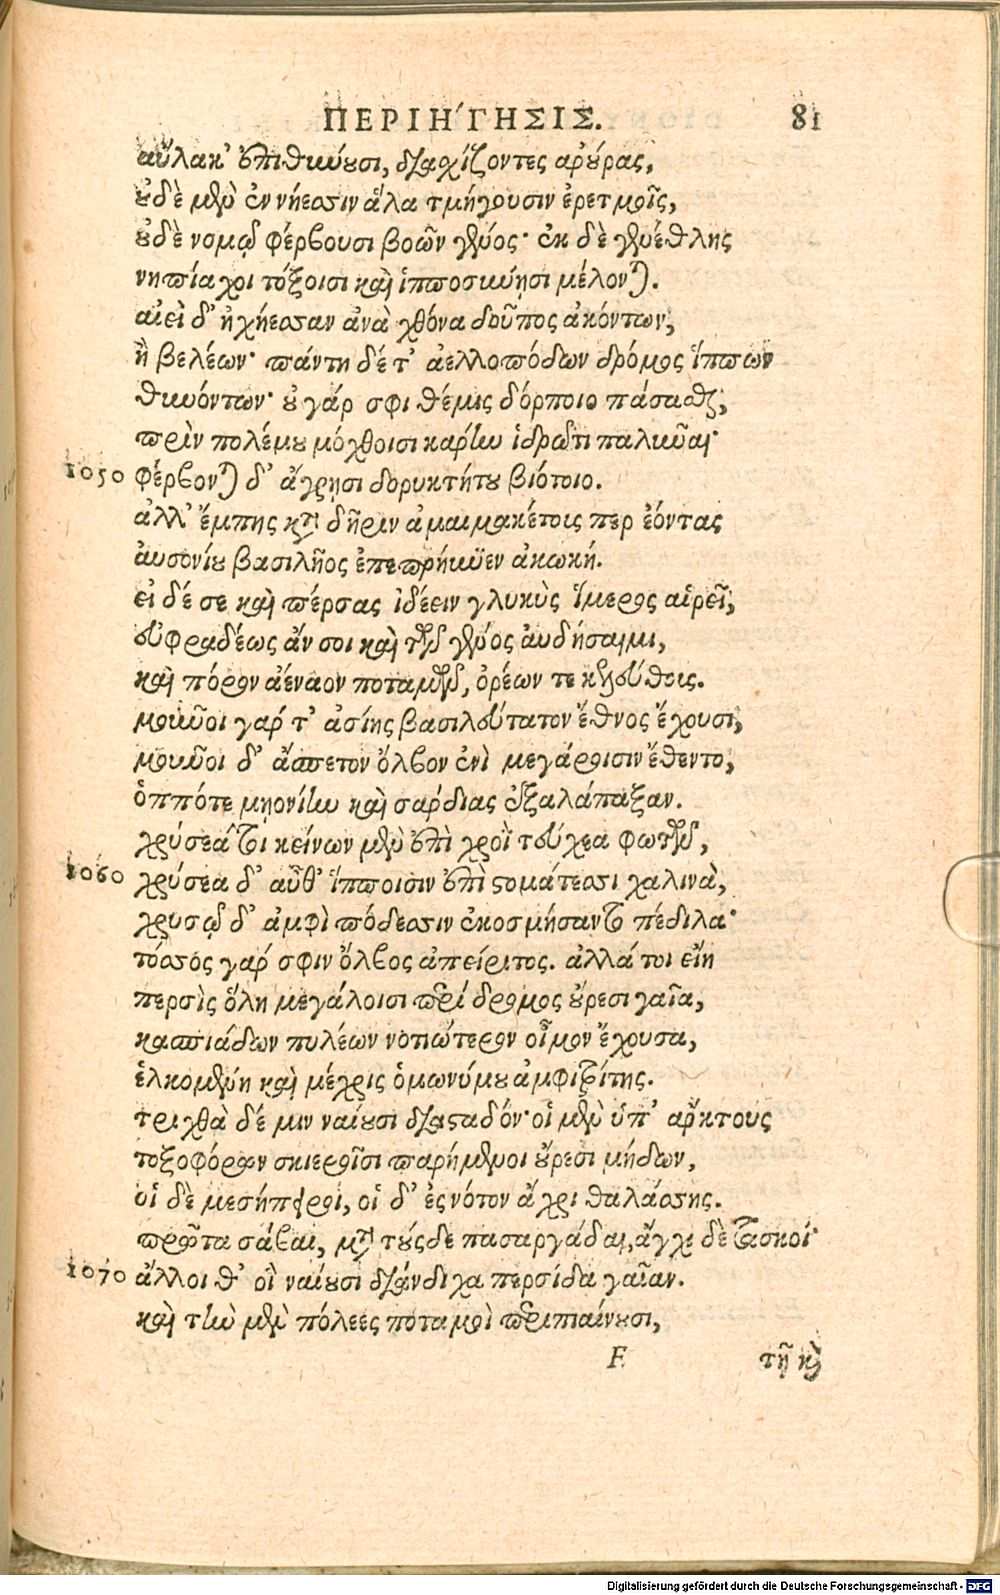 ΠΕΡΙΗΓΗΣΙΣ. 81
αὔλακ' ἐπιθύνουσι, διασχίζοντες ἀρούρας,
οὐδὲ μὲν ἐν νήεσσιν ἅλα τμήγουσιν ἐρετμοῖς,
οὐδὲ νομῷ φέρβουσι βοῶν γένος· ἐκ δὲ γενέθλης
νηπίαχοι τόξοισι καὶ ἱπποσύνῃσι μέλονται.
αἰεὶ δ' ἠχήεσσαν ἀνὰ χθόνα δοῦπος ἀκόντων,
ἢ βελέων· πάντη δέ τ' ἀελλοπόδων δρόμος ἵππων
θυνόντων· οὐ γάρ σφι θέμις δόρποιο πάσασθαι,
πρὶν πολέμου μόχθοισι κάρην ἱδρῶτι παλῦναι·
1050 φέρβονται δ' ἄγρῃσι δορυκτήτου βιότοιο.
ἀλλ' ἔμπης κατὰ δῆριν ἀμαιμακέτοις περ ἐόντας
αὐσονίου βασιλῆος ἐπεπρήϋνεν ἀκωκή.
εἰ δέ σε καὶ πέρσας ἰδέειν γλυκὺς ἵμερος αἱρεῖ,
εὐφραδέως ἄν σοι καὶ τῶν γένος αὐδήσαιμι,
καὶ πόρον ἀέναον ποταμῶν, ὀρέων τε κελεύθοις.
μοῦνοι γάρ τ' ἀσίης βασιλεύτατον ἔθνος ἔχουσι,
μοῦνοι δ' ἄσπετον ὄλβον ἐνὶ μεγάροισιν ἔθεντο,
ὁππότε μῃονίην καὶ σάρδιας ἐξαλάπαξαν.
χρύσεά τοι κείνων μὲν ἐπὶ χροῒ τεύχεα φωτῶν,
1060 χρύσεα δ' αὖθ' ἵπποισιν ἐπὶ στομάτεσσι χαλινὰ,
χρυσῷ δ' ἀμφὶ πόδεσσιν ἐκοσμήσαντο πέδιλα·
τόσσος γάρ σφιν ὄλβος ἀπείριτος. ἀλλά τοι εἴη
περσὶς ὅλη μεγάλοισι περίδρομος οὔρεσι γαῖα,
κασπιάδων πυλέων νοτιώτερον οἶμον ἔχουσα,
ἑλκομένη καὶ μέχρις ὁμωνύμου ἀμφιτρίτης.
τριχθὰ δέ μιν ναίουσι διασταδόν· οἱ μὲν ὑπ' ἄρκτους
τοξοφόρων σκιεροῖσι παρήμενοι οὔρεσι μήδων,
οἱ δὲ μεσήπειροι, οἱ δ' ἐς νότον ἄχρι θαλάσσης.
πρῶτα σάβαι, μετὰ τούςδε πασαργάδαι, ἄγχι δὲ τασκοί·
1070 ἄλλοι θ' οἳ ναίουσι διάνδιχα περσίδα γαῖαν.
καὶ τὴν μὲν πόλεες ποταμοὶ περιπιαίνουσι,
F τῇ καὶ
Digitalisierung gefördert durch die Deutsche Forschungsgemeinschaft - DFG